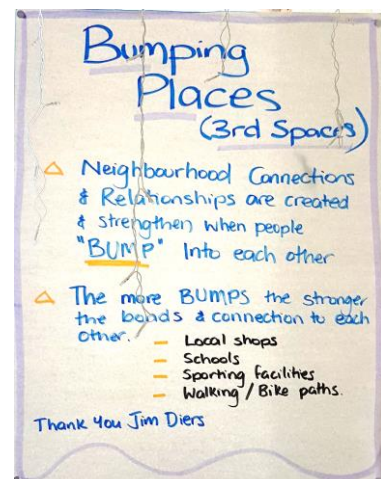 Bumping
Places
(3rd Spaces)
Neighbourhood Connections
& Relationships are created
& strengthen when people
"BUMP" Into each other
The more BUMPS the stronger
the bonds & connection to each
other.
– Local shops
– Schools
– Sporting facilities
– Walking / Bike paths.
Thank You Jim Diers